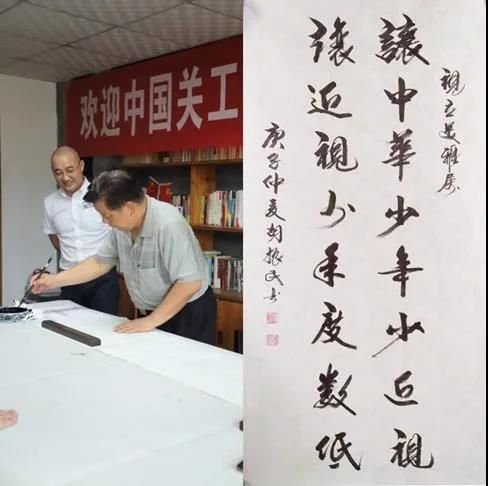 欢迎中国关工
視立美雅属
讓中華少年少近視
讓近視少年度数低
庚子仲夏胡振民书